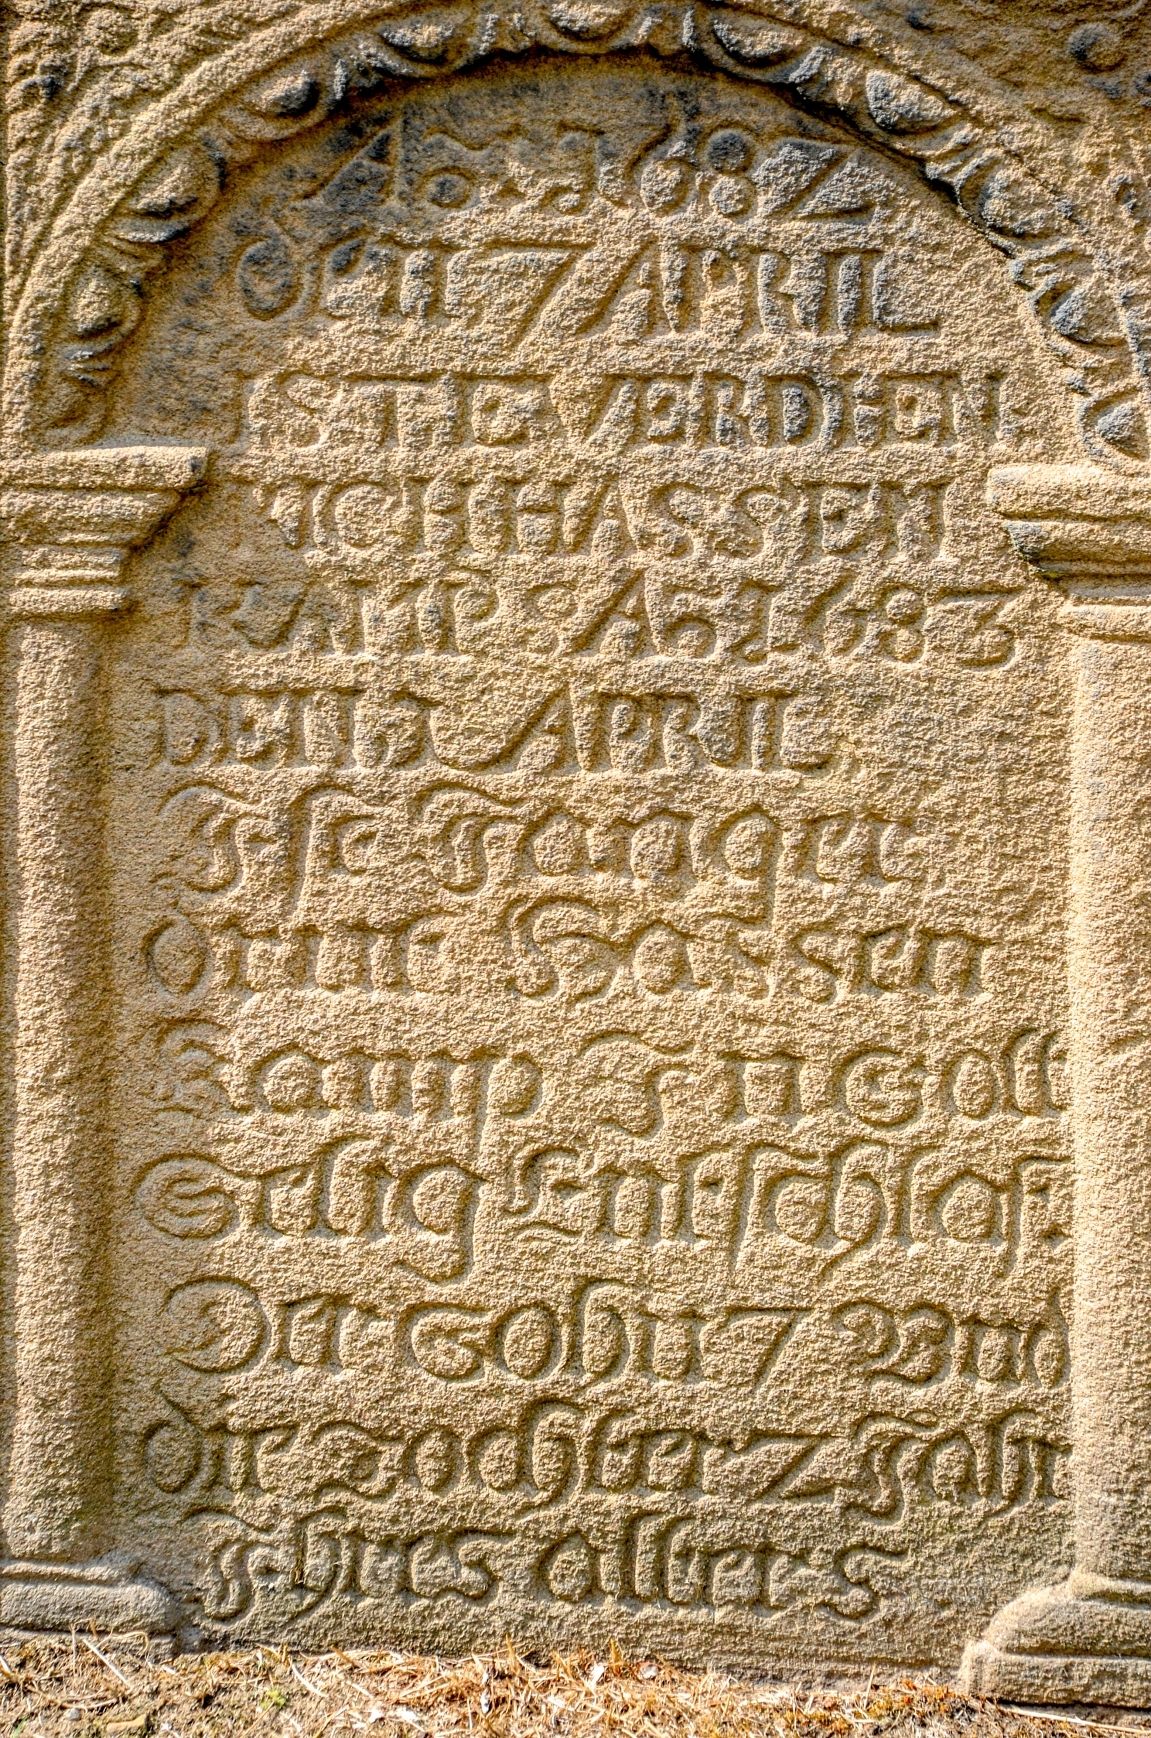 Ao 1682
Den 7 APRIL
IST HE VERDEN
ICH HASSEN
KAMP S Ao 1683
DEN 2 APRIL
Ist Iangen
Onne Hassen
Kamp In Gott
Selig Entschlaf
Der Sohn 7 Wuch
die Dochter 2 Jahr
Ihres alters